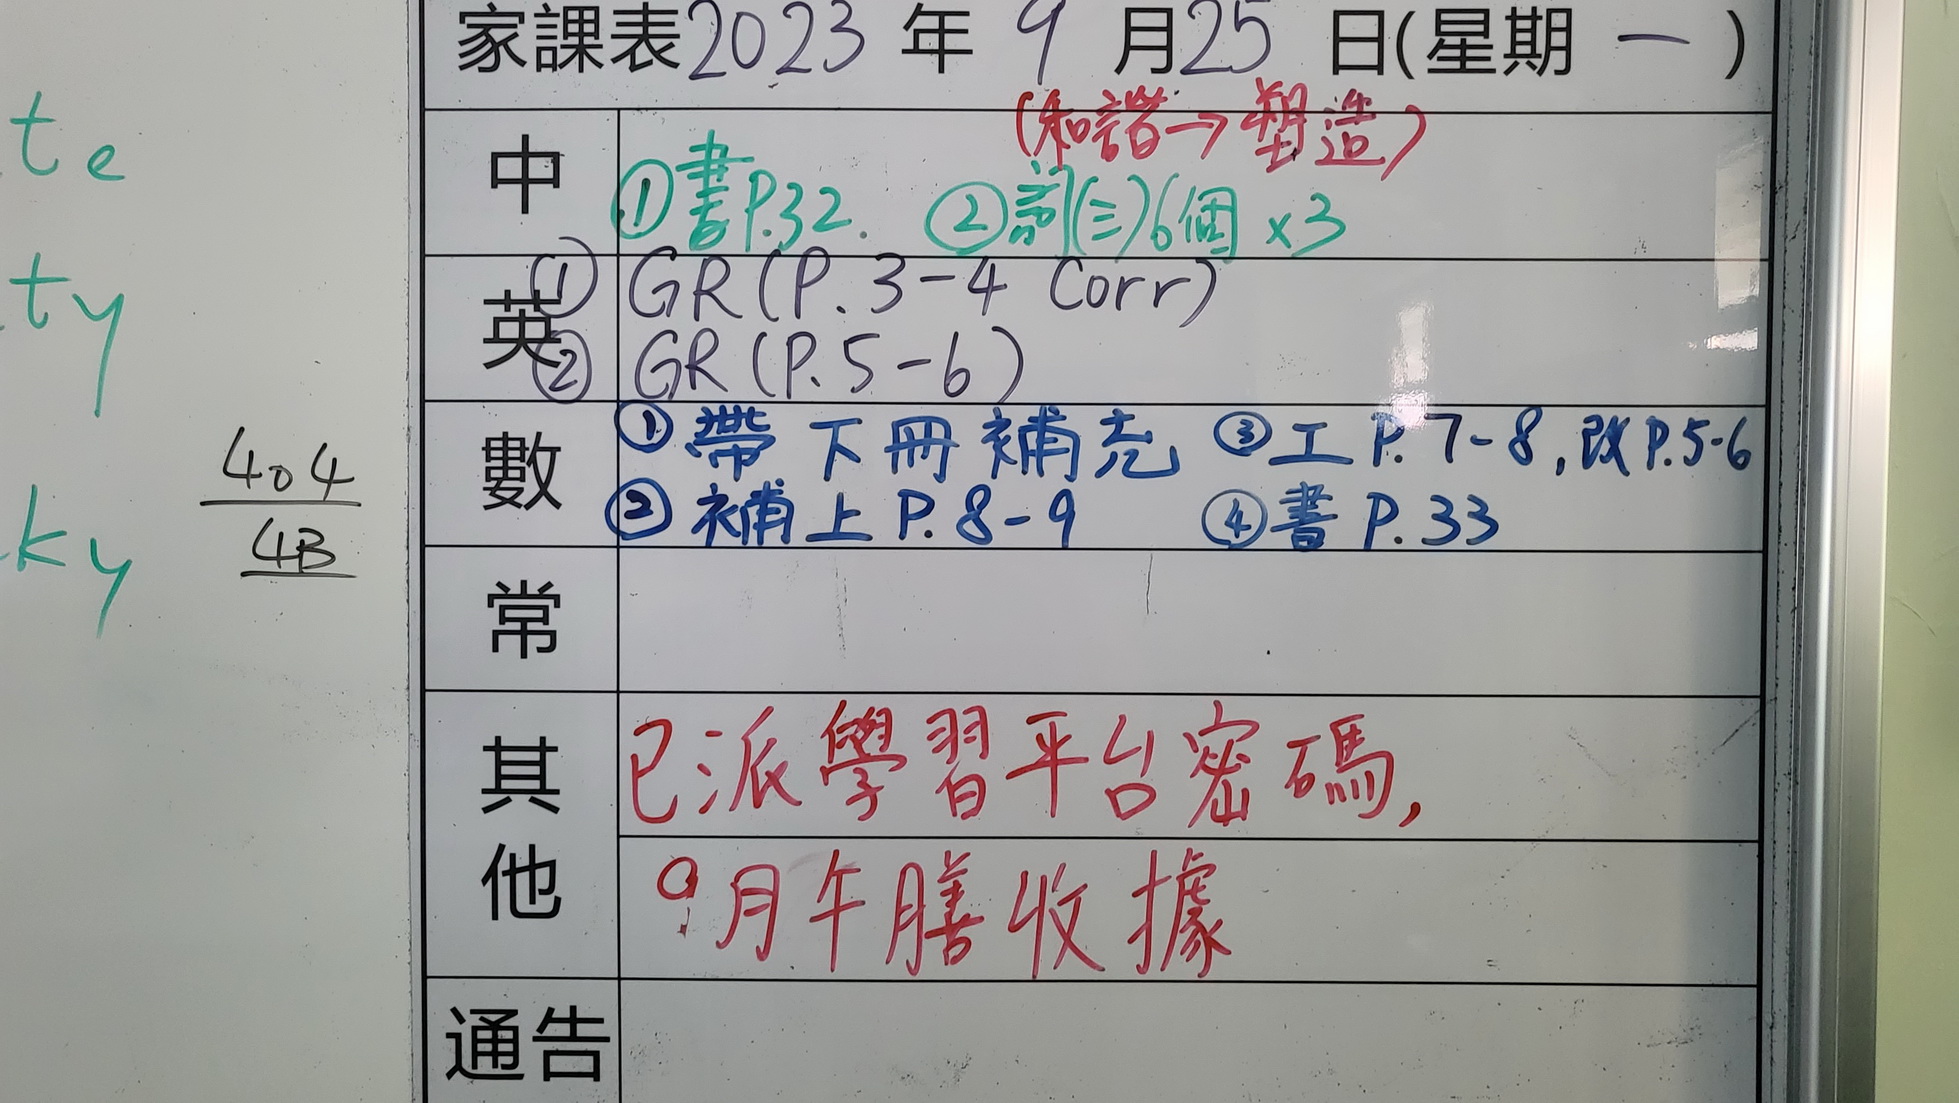 家課表2023年9月25日(星期一)
(和諧→塑造)
中 ①書P.32. ②詞(三)6個 x3
英 ① GR(P.3-4 Corr)
② GR(P.5-6)
數 ①帶下冊補充 ③工P.7-8,改P.5-6
②補上P.8-9 ④書P.33
常
其他 已派學習平台密碼,
9月午膳收據
通告
te
ty
ky
404
4B